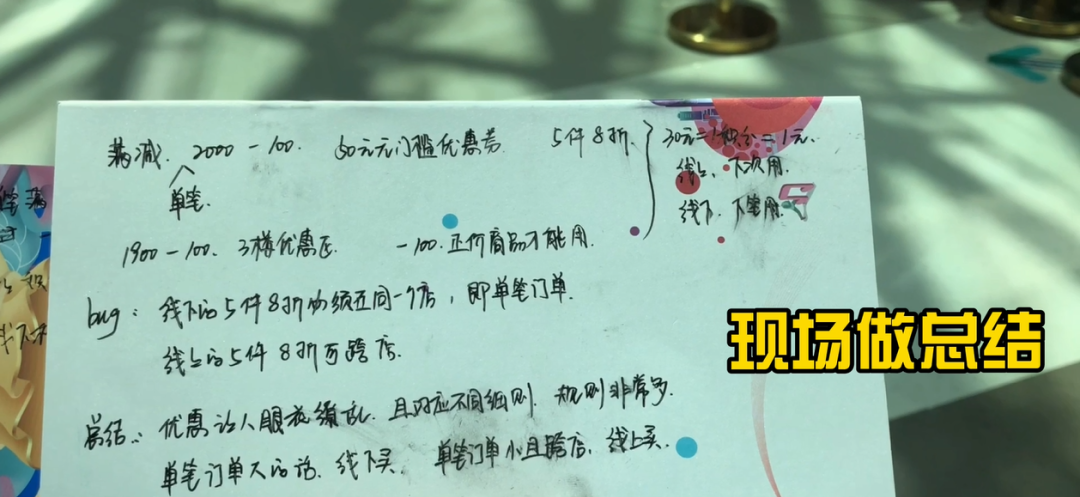 满减. 2000-100. 50元无门槛优惠券 5件8折.
单笔.
30元=1积分=1元.
线上、下次用.
线下、下笔用.
1900-100、3样优惠区 -100.正价商品才能用.
bug: 线下的5件8折必须在同一个店，即单笔订单.
线上的5件8折可跨店.
总结: 优惠让人眼花缭乱. 且对应不同细则. 规则非常多.
单笔订单大的话、线下买. 单笔订单小且跨店、线上买.
现场做总结